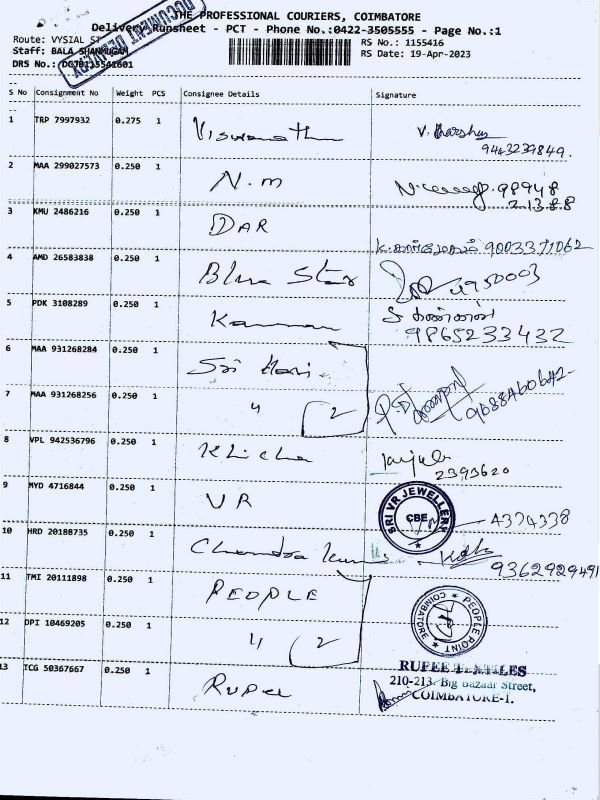 THE PROFESSIONAL COURIERS, COIMBATORE
Delivery Runsheet - PCT - Phone No.:0422-3505555 - Page No.:1
Route: VYSIAL ST RS No.: 1155416
Staff: BALA RS Date: 19-Apr-2023
DRS No.:
S No Consignment No Weight PCS Consignee Details Signature
1 TRP 7997932 0.275 1 Viswanathan V.
9443239849.
2 MAA 299027573 0.250 1 N.M 98948
21388
3 KMU 2486216 0.250 1 DAR
9003371062
4 AMD 26583838 0.250 1 Blue Star 4950003
5 PDK 3108289 0.250 1 Kannan கண்ணன்
9865233432
6 MAA 931268284 0.250 1 Sri Hari
7 MAA 931268256 0.250 1 " 2 9088460642
8 VPL 942536796 0.250 1
2393620
9 MYD 4716844 0.250 1 VR SRI VR JEWELLERY CBE 4374338
10 HRD 20188735 0.250 1 Chandra
9362929491
11 TMI 20111898 0.250 1 PEOPLE
PEOPLE POINT COIMBATORE
12 DPI 10469205 0.250 1 " 2
13 TCG 50367667 0.250 1 Rupee RUPEE
210-213, Big Bazaar Street,
COIMBATORE-1.